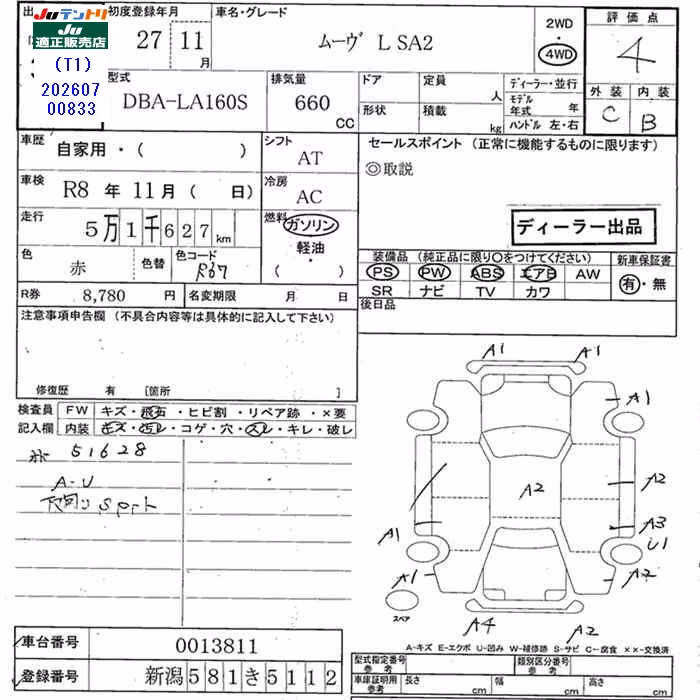 出
JUテントリ
JU
適正販売店
(T1)
202607
00833
初度登録年月
27 11月
車名・グレード
ムーヴ L SA2
2WD
・
4WD
評価点
4
外装 内装
C B
型式
DBA-LA160S
排気量
660 CC
ドア
形状
定員 人
積載 kg
ディーラー・並行
モデル年式 年
ハンドル 左・右
車歴
自家用・( )
シフト
AT
セールスポイント (正常に機能するものに限ります)
◎取説
車検
R8 年 11月 ( 日)
冷房
AC
走行
5万1千627km
燃料
ガソリン
・
軽油
・
( )
ディーラー出品
色
赤
色替
色コード
R67
装備品 (純正品に限り○をつけてください)
PS PW ABS エアB AW
SR ナビ TV カワ
新車保証書
有・無
R券 8,780 円
名変期限 月 日
後日品
注意事項申告欄 (不具合内容等は具体的に記入して下さい)
修復歴 有 [箇所 ]
検査員
記入欄
FW キズ・飛石・ヒビ割・リペア跡・×要
内装 キズ・汚レ・コゲ・穴・スレ・キレ・破レ
51628
A-U
下回り
A1 A1
A1
A2
A2
A3
U1
A1
A1
A2
スペア
A4 A2
A-キズ E-エクボ U-凹み W-補修跡 S-サビ C-腐食 ××-交換済
車台番号 0013811
登録番号 新潟581き5112
型式指定番号
参考
類別区分番号
参考
車庫証明用
参考
長さ cm
幅 cm
高さ cm